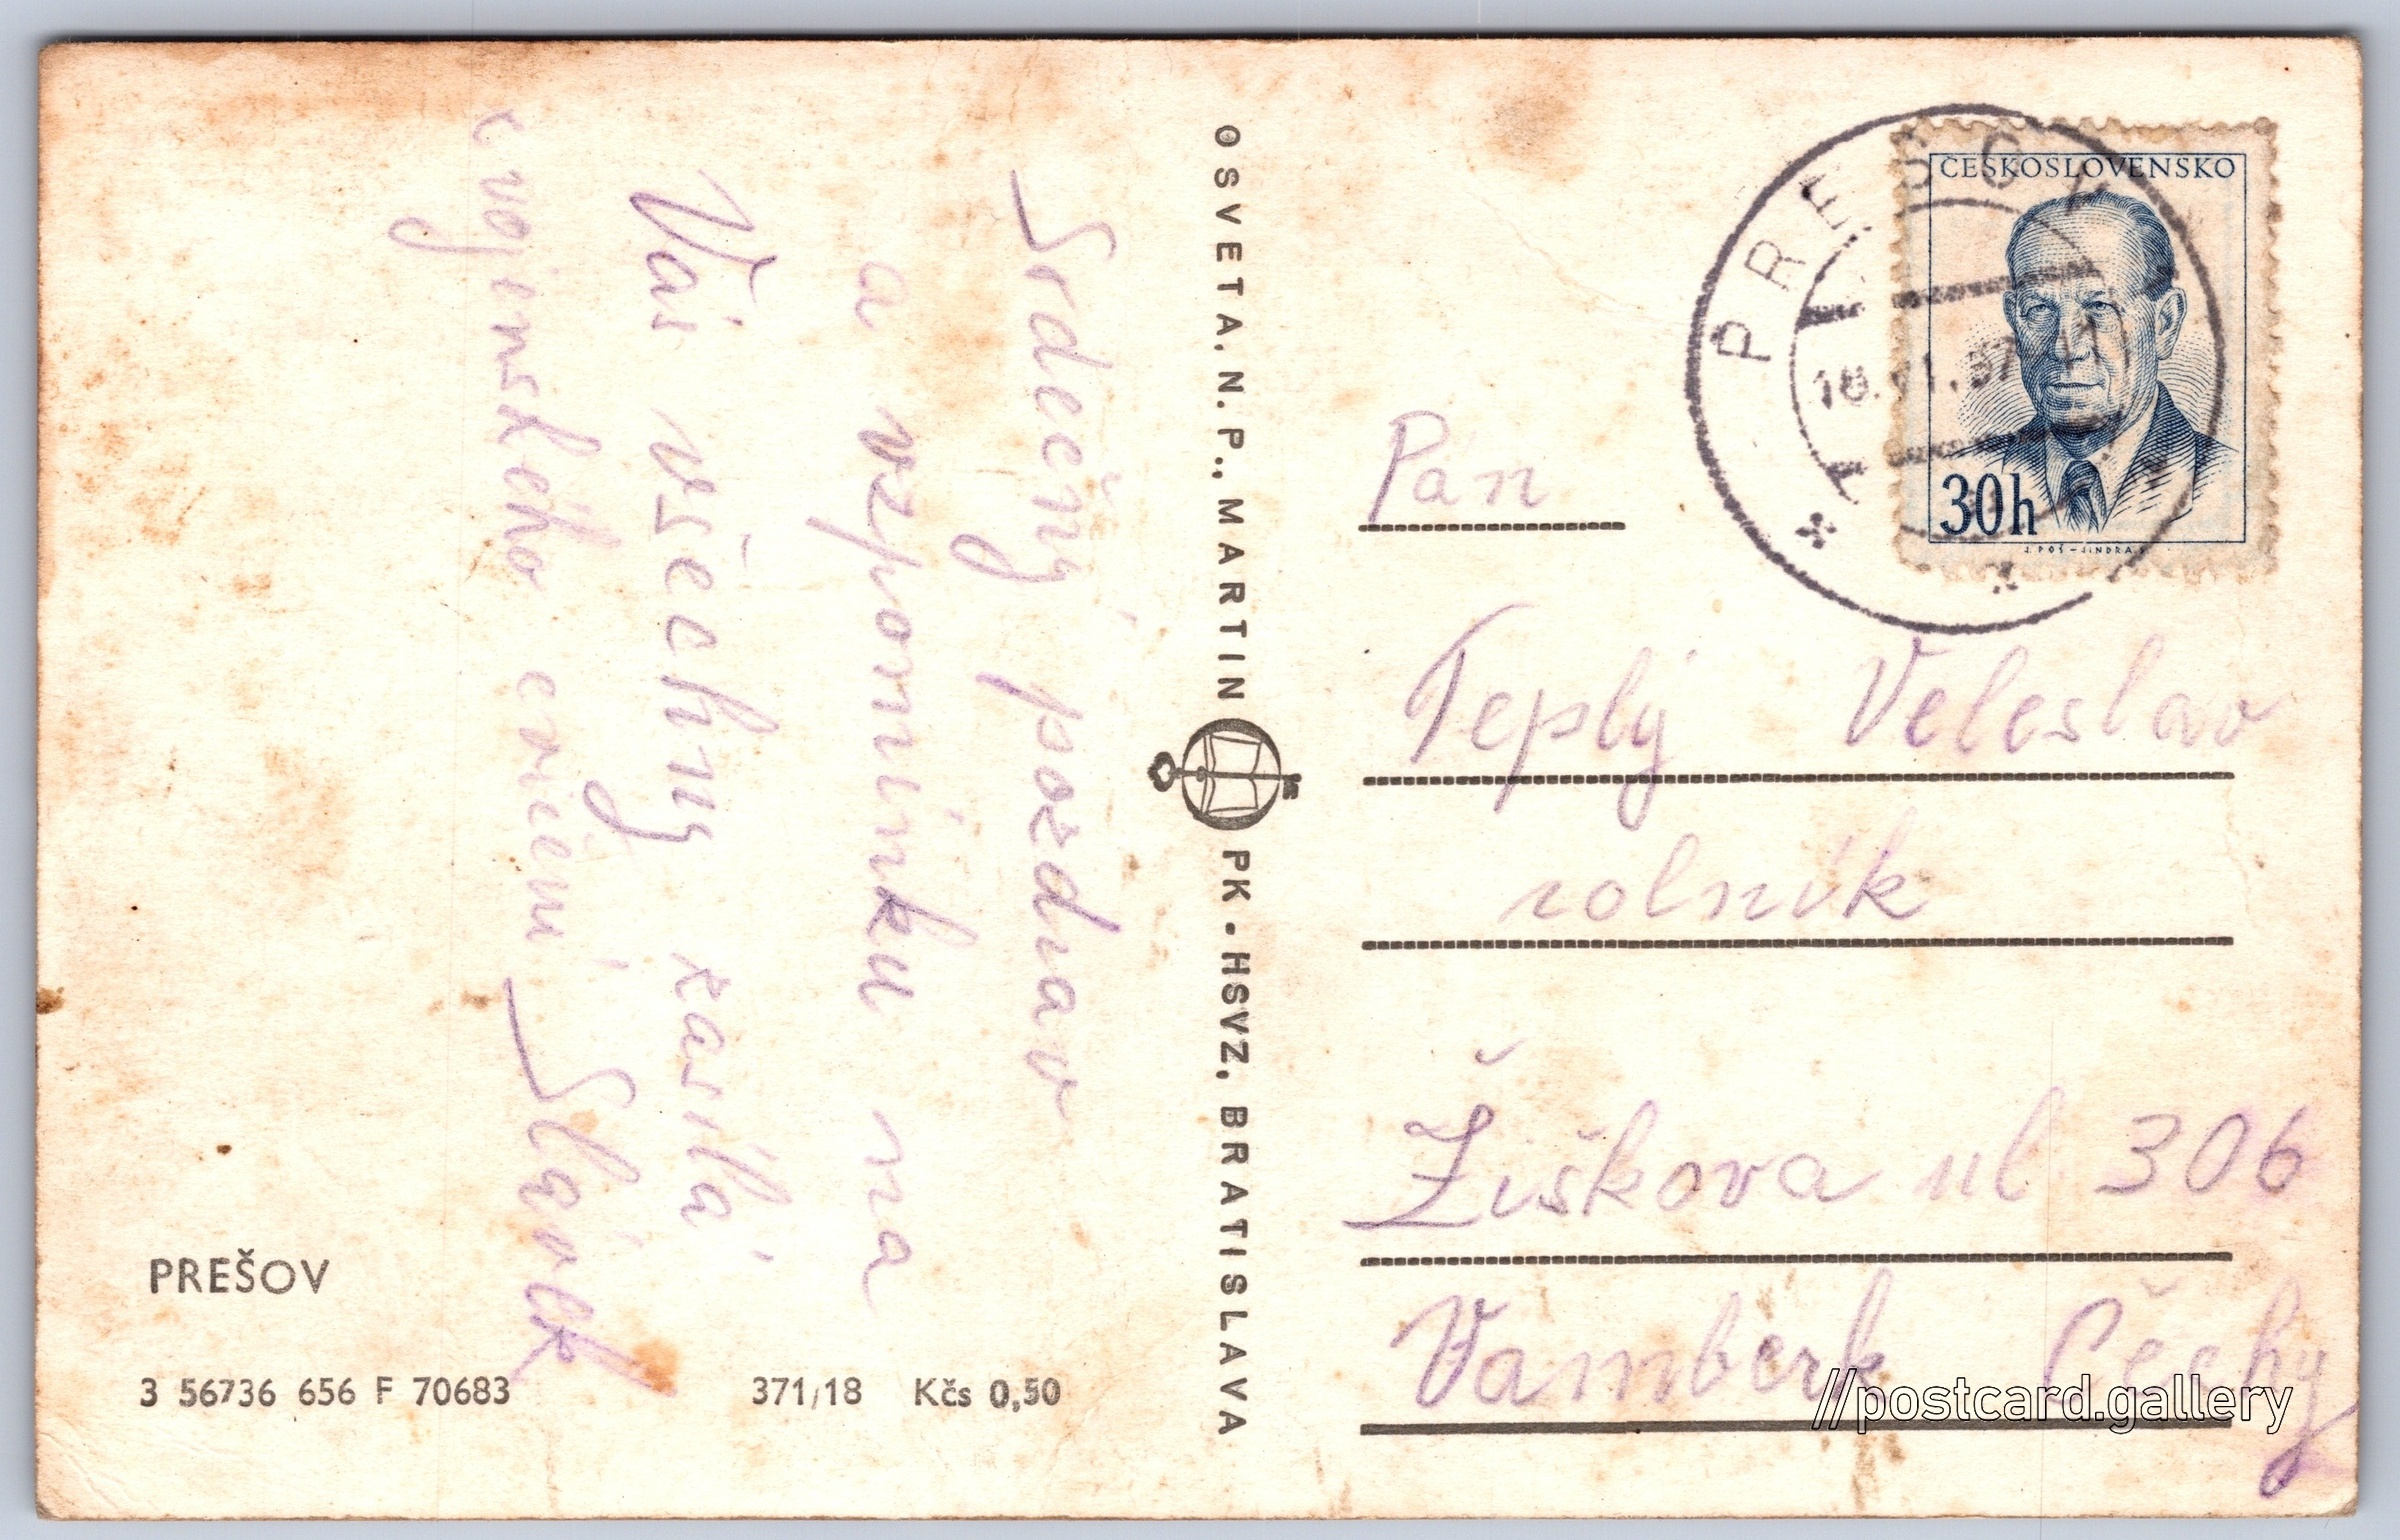 Srdečný pozdrav
a vzpomínku na
Vás všechny zasílá
z vojenského cvičení Slávek
PREŠOV
3 56736 656 F 70683
371/18 Kčs 0,50
OSVETA, N. P., MARTIN
PK - HSVZ, BRATISLAVA
PREŠOV
ČESKOSLOVENSKO
30h
Pan
Teplý Veleslav
rolník
Žiškova ul 306
Vamberk Čechy
//postcard.gallery